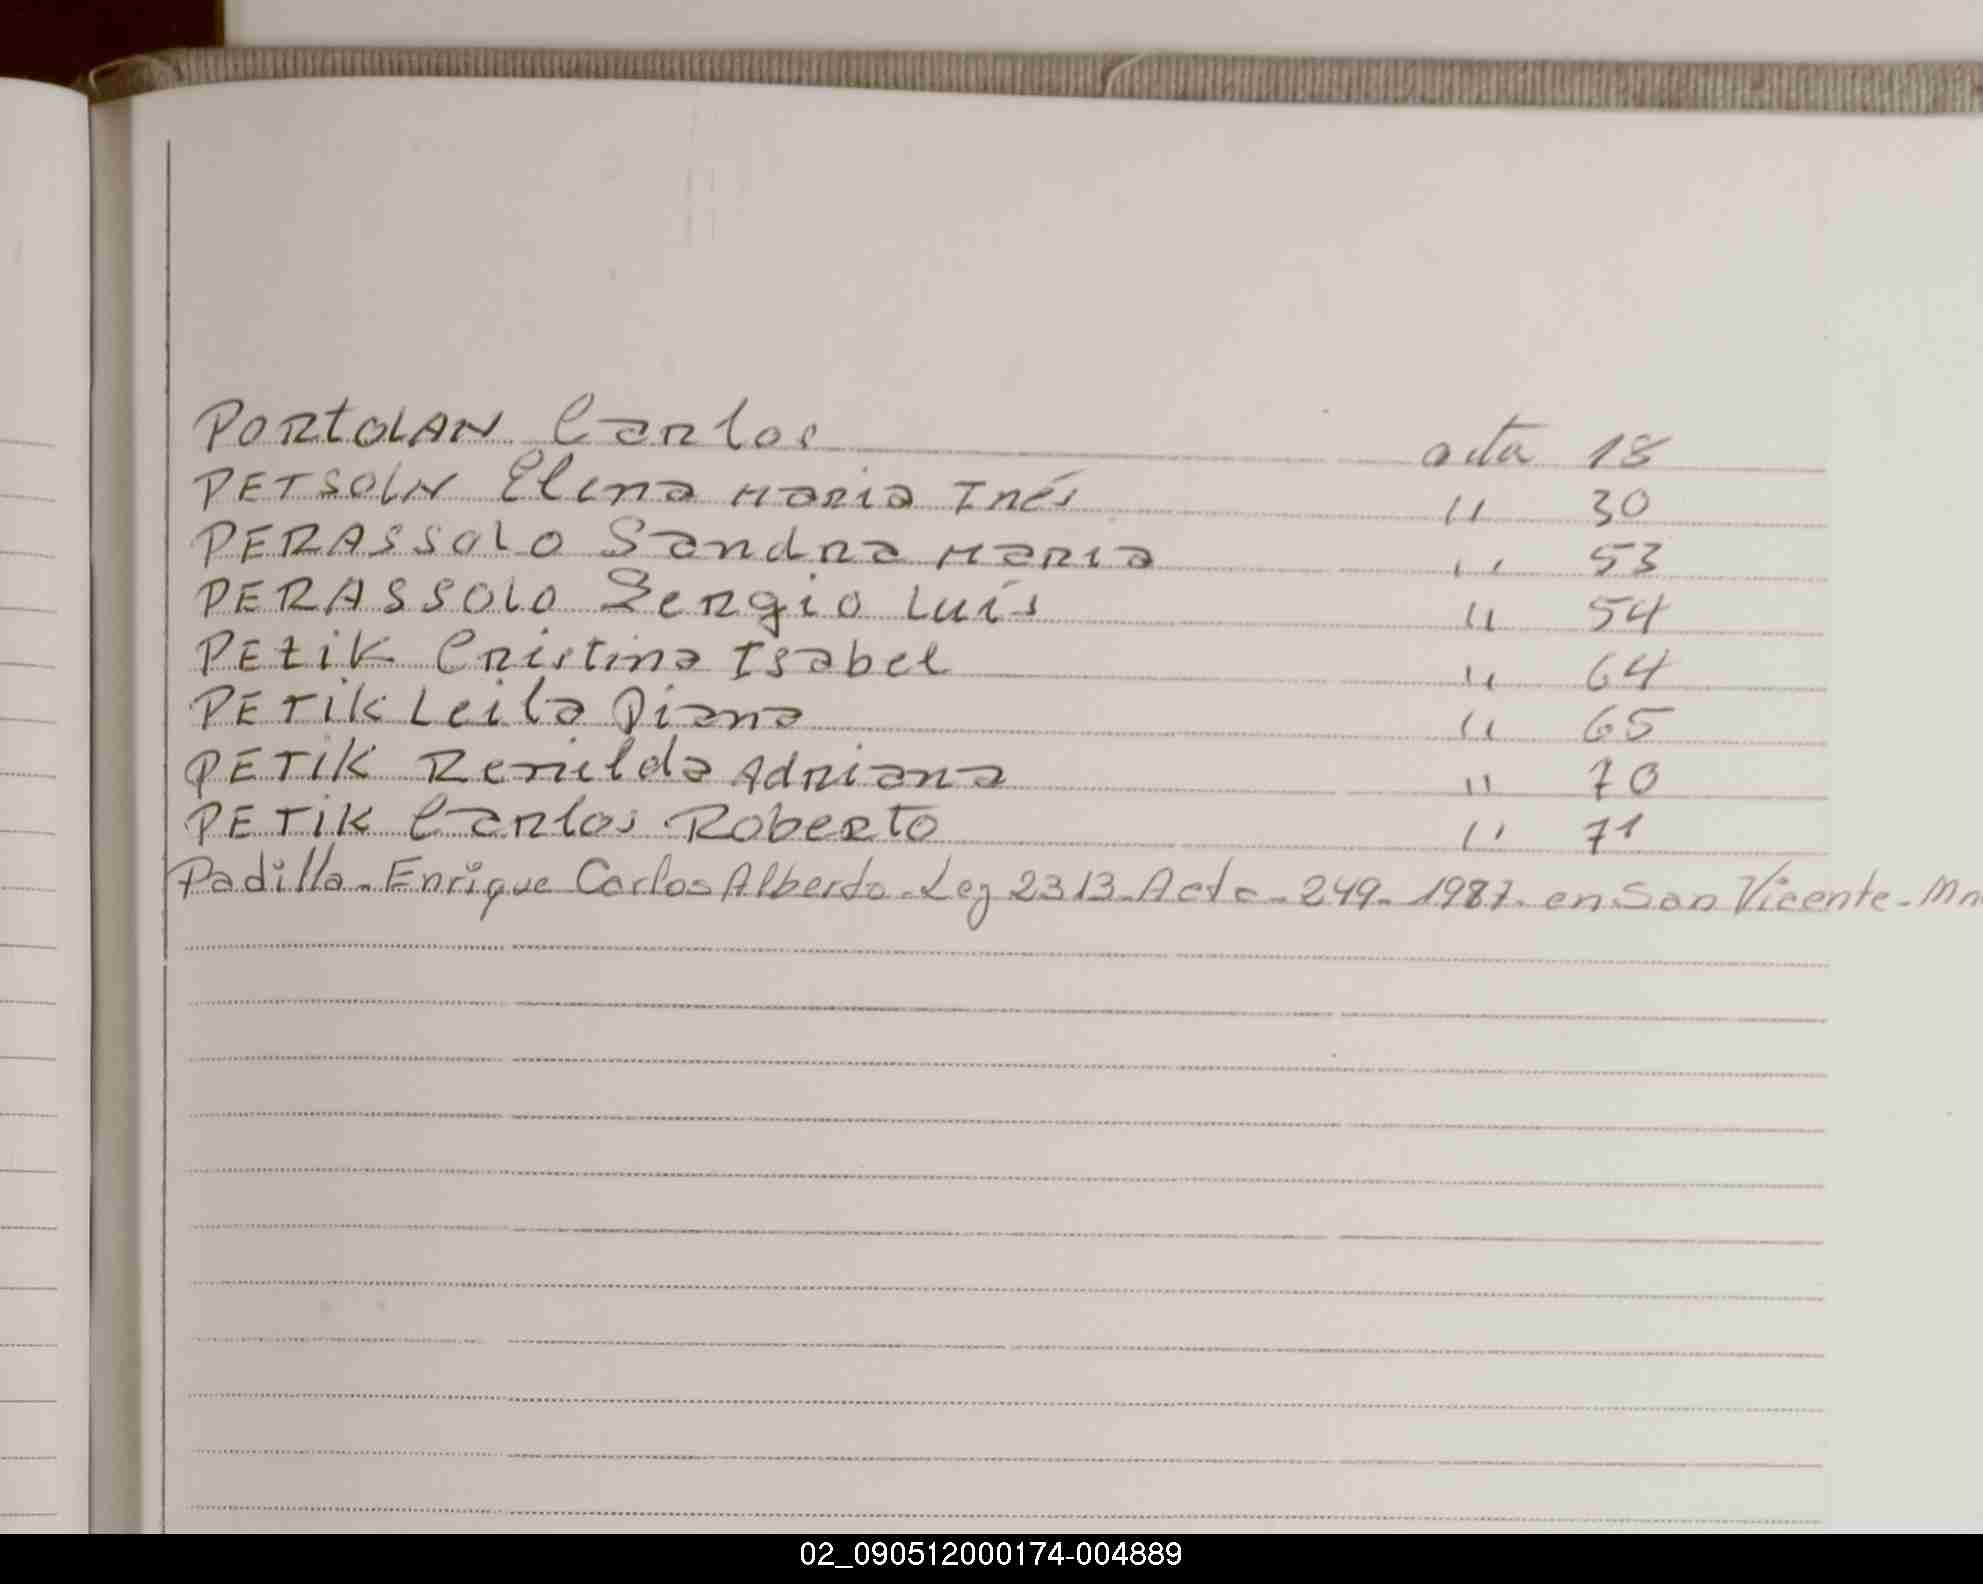 PORtOLAN Carlos acta 18
PETSOLN Elena Maria Inés " 30
PERASSOLO Sandra Maria " 53
PERASSOLO Sergio Luis " 54
PEtiK Cristina Isabel " 64
PETiK Leila Diana " 65
PETIK Renilda Adriana " 70
PETiK Carlos Roberto " 71
Padilla - Enrique Carlos Alberto - Leg 2313 - Acta - 249 - 1987 - en San Vicente - Mn
02_090512000174-004889